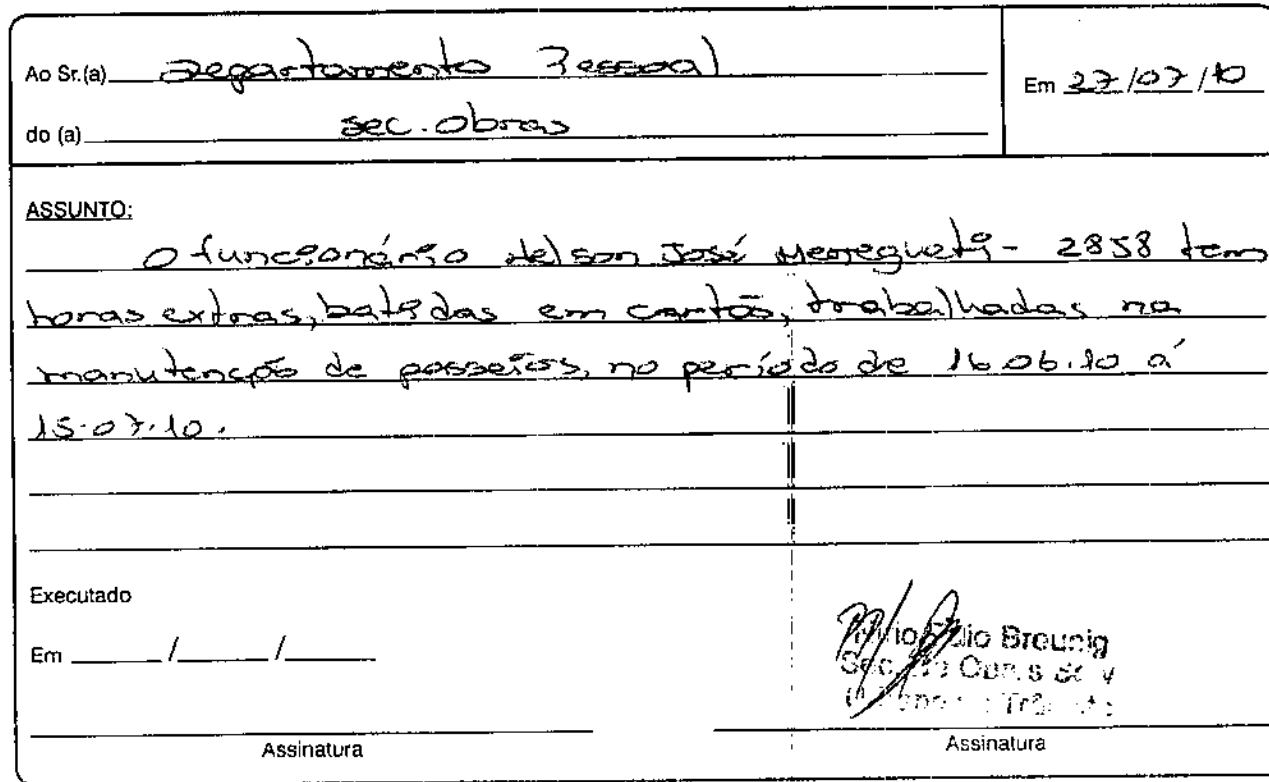 Ao Sr.(a) Departamento Pessoal
Em 27/07/10
do (a) sec. obras
ASSUNTO:
O funcionário Nelson José Menegueti - 2858 tem
horas extras, batidas em cartão, trabalhadas na
manutenção de passeios, no período de 16.06.10 á
15.07.10.
Executado
Em / /
Breunig
Assinatura
Assinatura